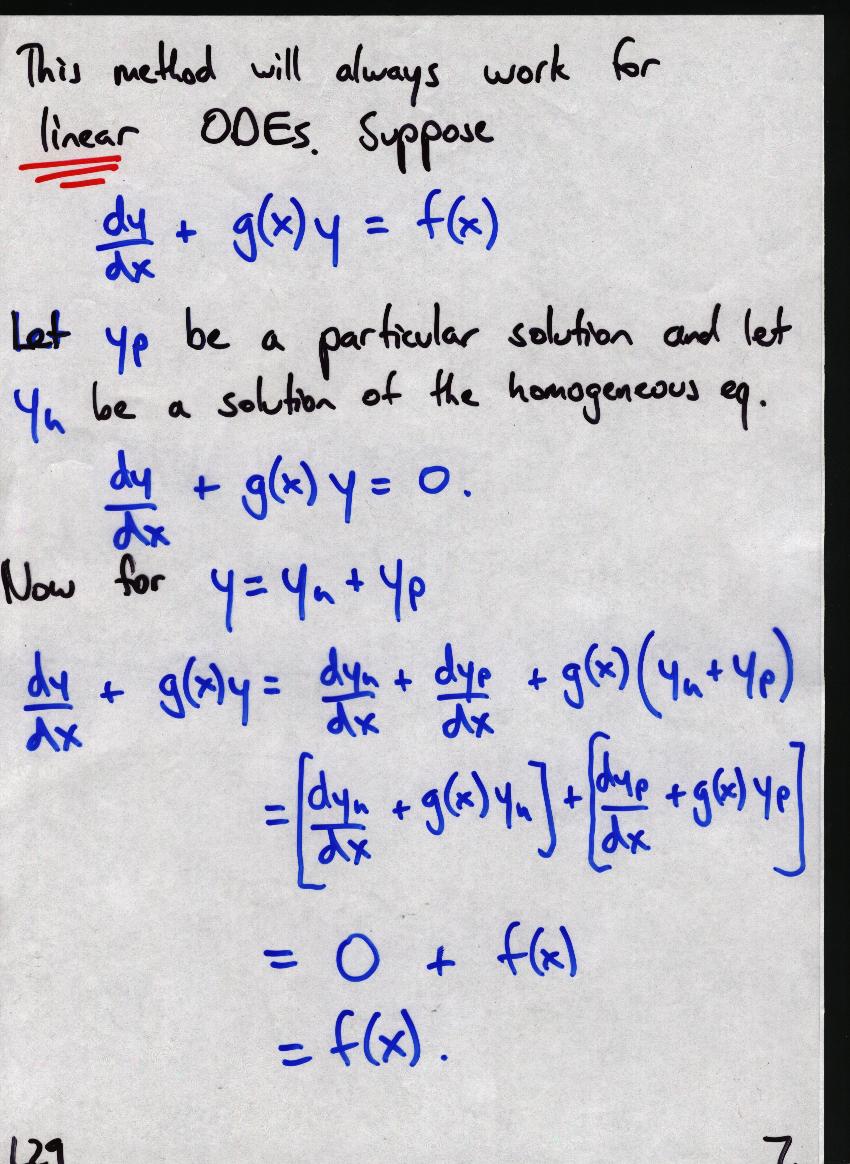 This method will always work for
linear ODEs. Suppose
dy/dx + g(x)y = f(x)
Let yp be a particular solution and let
yh be a solution of the homogeneous eq.
dy/dx + g(x)y = 0.
Now for y = yh + yp
dy/dx + g(x)y = dyh/dx + dyp/dx + g(x)(yh + yp)
= [dyh/dx + g(x)yh] + [dyp/dx + g(x)yp]
= 0 + f(x)
= f(x).
129 7